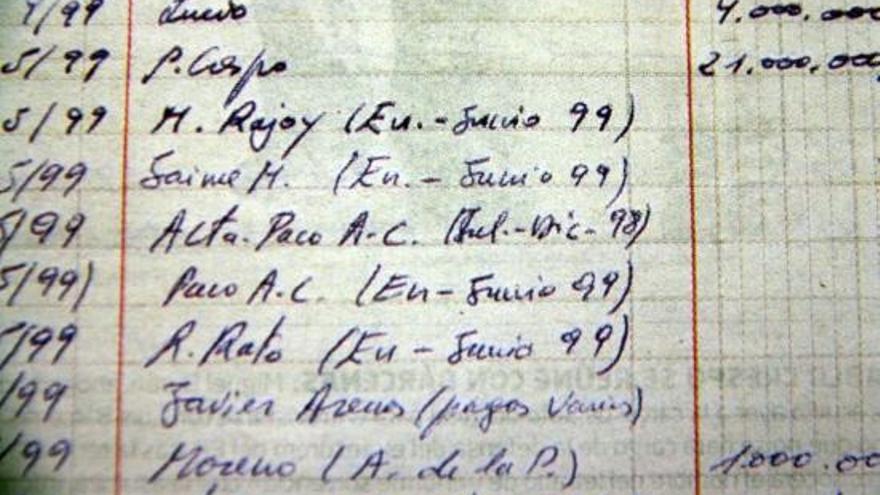 4/99 Lucio 4.000.000
5/99 P. Crespo 21.000.000
5/99 M. Rajoy (En.- Junio 99)
5/99 Jaime M. (En.- Junio 99)
5/99 Acta. Paco A-C. (Jul.-Dic- 98)
5/99) Paco A.C. (En- Junio 99)
5/99 R. Rato (En - Junio 99)
/99 Javier Arenas (pagos varios)
/99 Moreno (A. de la P.) 1.000.00
SE REÚNE CON BÁRCENAS.